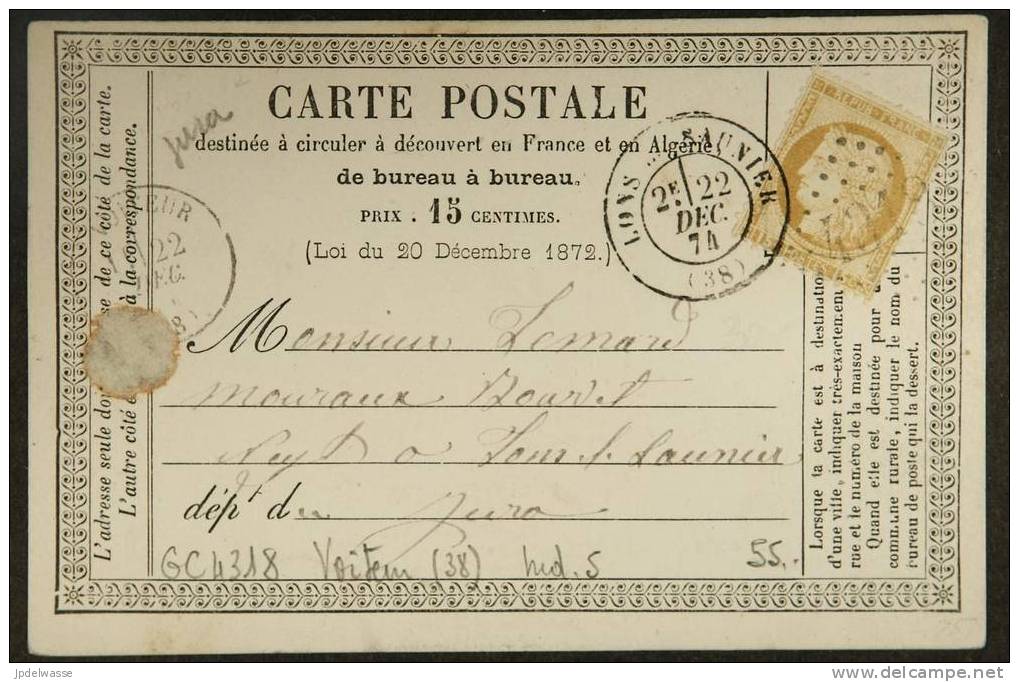 CARTE POSTALE
destinée à circuler à découvert en France et en Algérie
de bureau à bureau.
PRIX . 15 CENTIMES.
(Loi du 20 Décembre 1872.)
Jura
L'adresse seule do se de ce côté de la carte.
L'autre côté e à la correspondance.
22
LONS SAUNIER
2E 22
DEC.
74
(38)
REPUB FRANC
Monsieur Lemard
à Lons-l-Saunier
dépt du Jura
Lorsque la carte est à destination
d'une ville, indiquer très-exactement
rue et le numéro de la maison
Quand elle est destinée pour
commune rurale, indiquer le nom du
bureau de poste qui la dessert.
GC4318 Voiteur (38) Ind. 5 55.-
jpdelwasse
delcampe.net